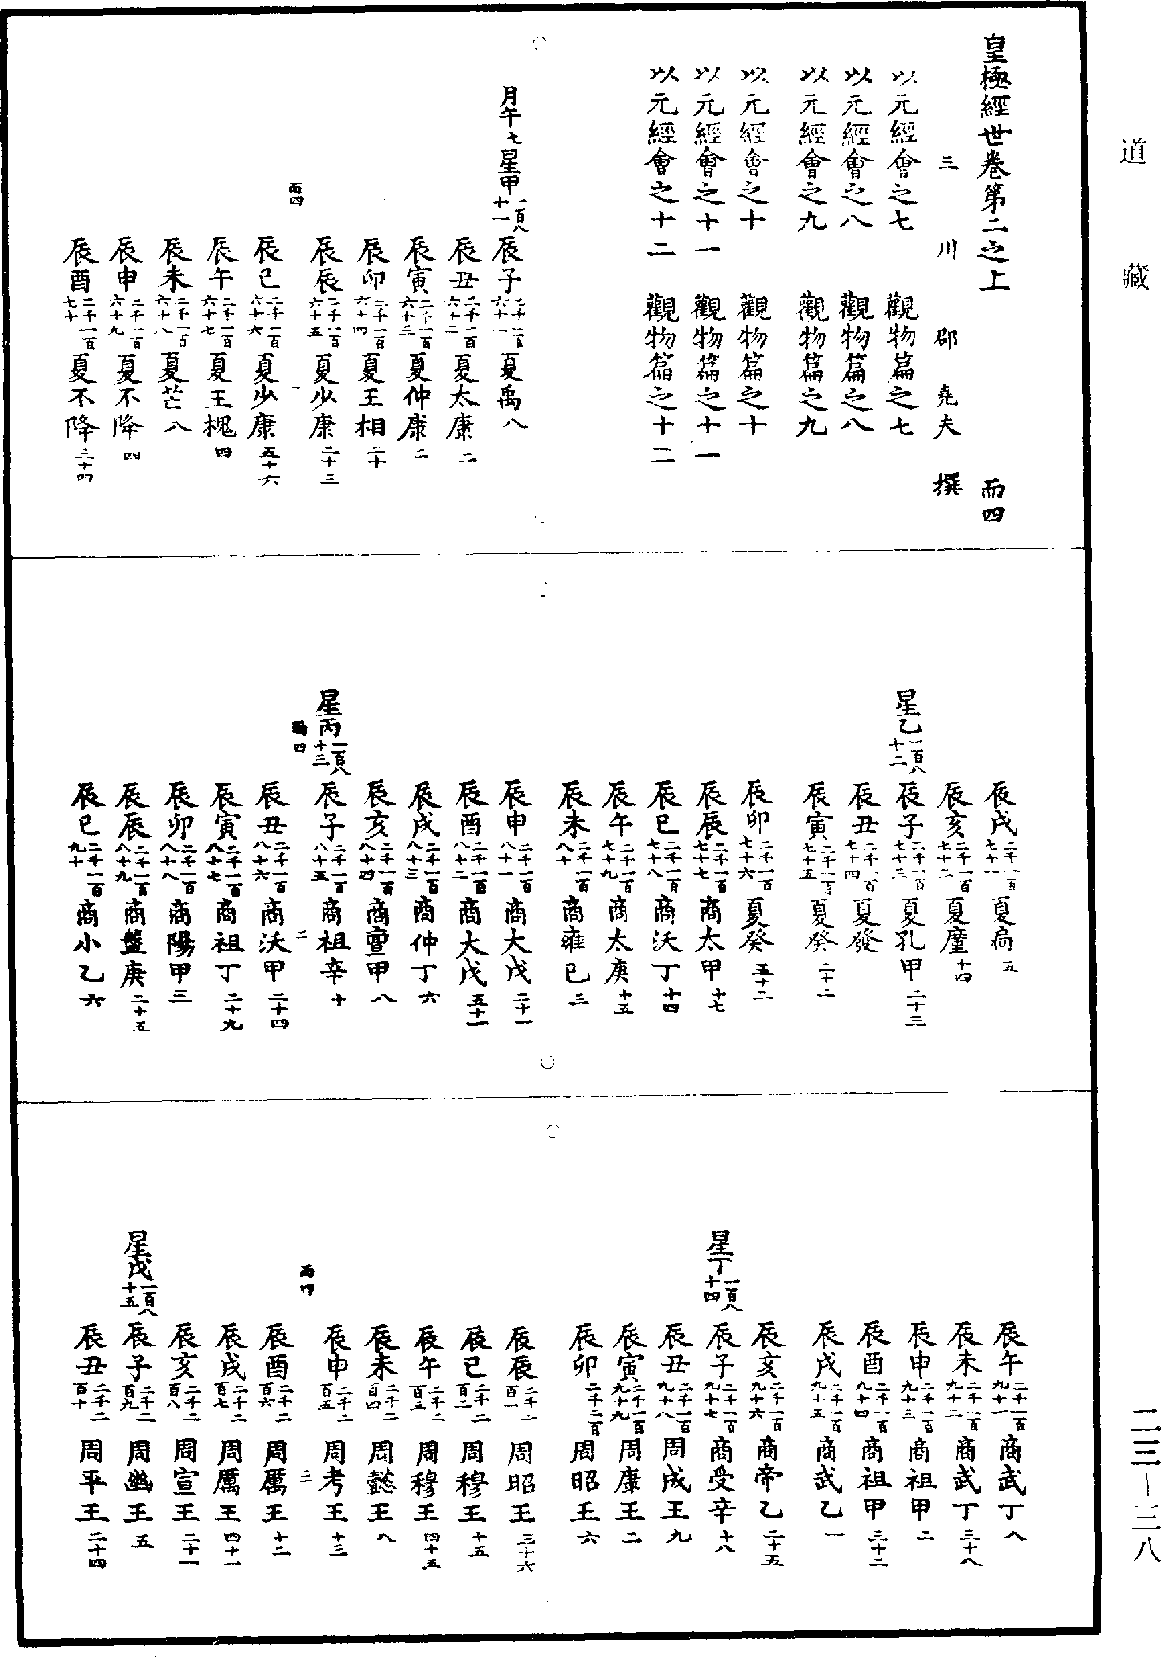 道藏
皇極經世卷第二之上 而四
三川邵堯夫撰
以元經會之七 觀物篇之七
以元經會之八 觀物篇之八
以元經會之九 觀物篇之九
以元經會之十 觀物篇之十
以元經會之十一 觀物篇之十一
以元經會之十二 觀物篇之十二
月午七星甲一百八十一
辰子二千一百六十一夏禹八
辰丑二千一百六十二夏太康二
辰寅二千一百六十三夏仲康二
辰卯二千一百六十四夏王相二十
辰辰二千一百六十五夏少康二十三
而四 一
辰巳二千一百六十六夏少康五十六
辰午二千一百六十七夏王槐四
辰未二千一百六十八夏芒八
辰申二千一百六十九夏不降四
辰酉二千一百七十夏不降三十四
辰戌二千一百七十一夏扃五
辰亥二千一百七十二夏廑十四
星乙一百八十二
辰子二千一百七十三夏孔甲二十三
辰丑二千一百七十四夏發
辰寅二千一百七十五夏癸二十二
辰卯二千一百七十六夏癸五十二
辰辰二千一百七十七商太甲十七
辰巳二千一百七十八商沃丁十四
辰午二千一百七十九商太庚十五
辰未二千一百八十商雍己三
辰申二千一百八十一商大戊二十一
辰酉二千一百八十二商大戊五十一
辰戌二千一百八十三商仲丁六
辰亥二千一百八十四商亶甲八
星丙一百八十三
辰子二千一百八十五商祖辛十
而四 二
辰丑二千一百八十六商沃甲二十四
辰寅二千一百八十七商祖丁二十九
辰卯二千一百八十八商陽甲三
辰辰二千一百八十九商盤庚二十五
辰巳二千一百九十商小乙六
辰午二千一百九十一商武丁八
辰未二千一百九十二商武丁三十八
辰申二千一百九十三商祖甲二
辰酉二千一百九十四商祖甲三十二
辰戌二千一百九十五商武乙一
辰亥二千一百九十六商帝乙二十五
星丁一百八十四
辰子二千一百九十七商受辛十八
辰丑二千一百九十八周成王九
辰寅二千一百九十九周康王二
辰卯二千二百周昭王六
辰辰二千二百一周昭王三十六
辰巳二千二百二周穆王十五
辰午二千二百三周穆王四十五
辰未二千二百四周懿王八
辰申二千二百五周考王十三
而四 三
辰酉二千二百六周厲王十二
辰戌二千二百七周厲王四十一
辰亥二千二百八周宣王二十一
星戊一百八十五
辰子二千二百九周幽王五
辰丑二千二百十周平王二十四
二三—三八